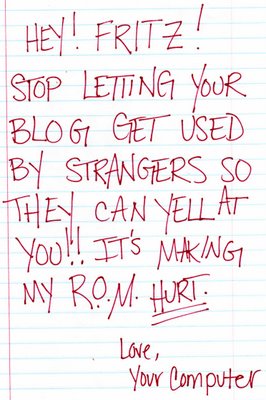 HEY! FRITZ!
STOP LETTING YOUR
BLOG GET USED
BY STRANGERS SO
THEY CAN YELL AT
YOU!! IT'S MAKING
MY R.O.M. HURT.
Love,
Your Computer